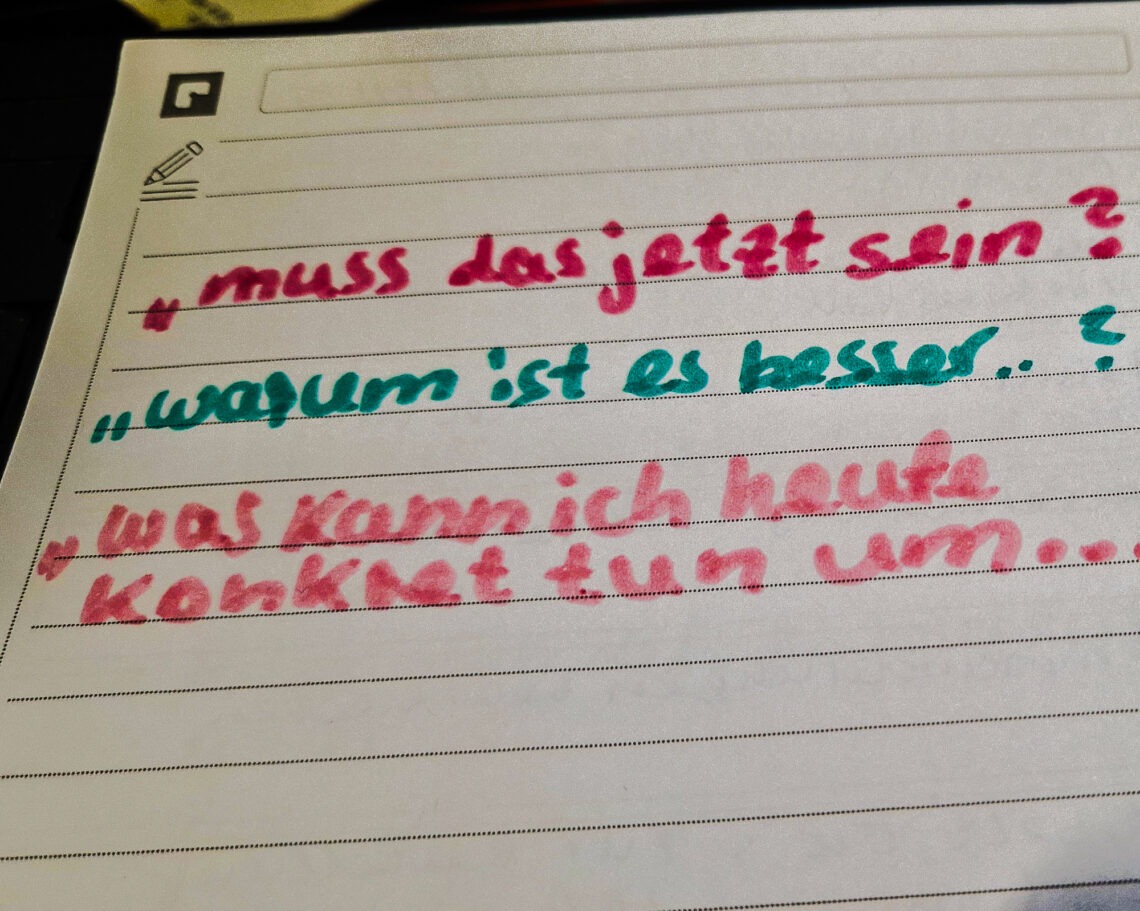 „muss das jetzt sein?
„warum ist es besser..?
„was kann ich heute
konkret tun um...